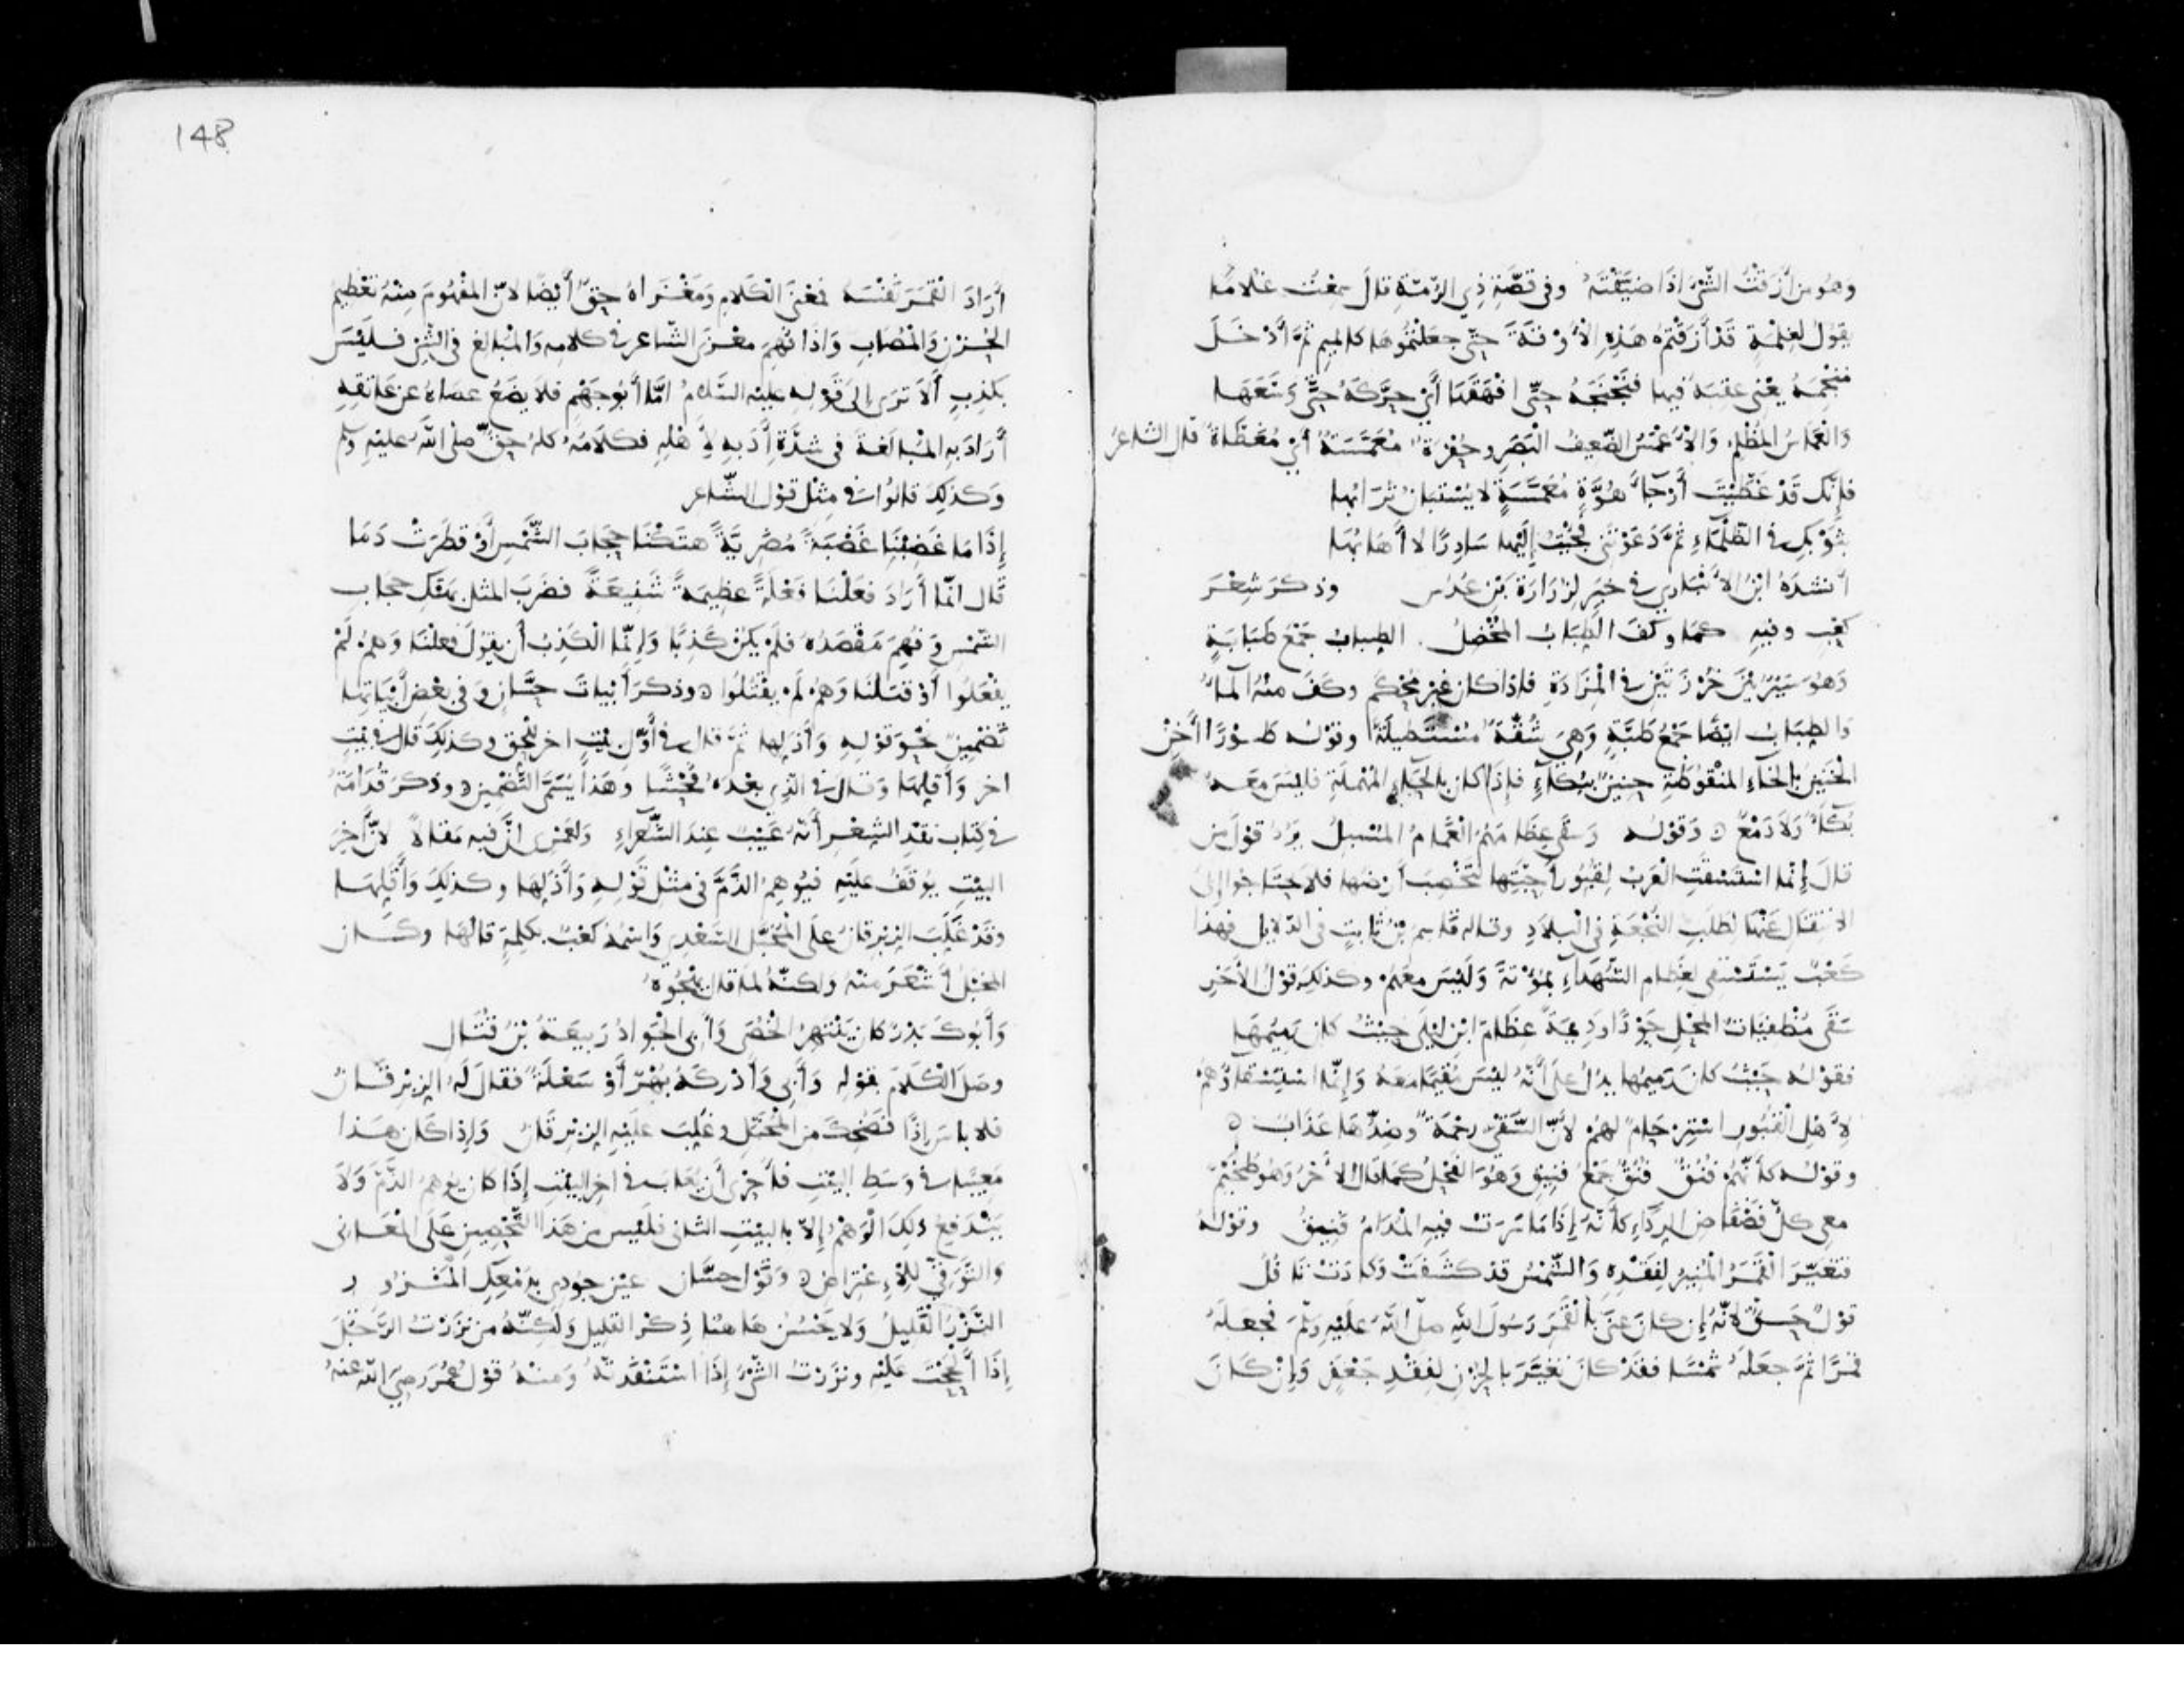 وَهُوَ مِنْ أَزَقْتُ الشَّيْءَ اِذَا ضَيَّقْتَهُ وفى قصَّةِ ذِي الرُّمَّةِ قالَ سمِعْتُ غلامًا
يقولُ لغِلْمَةٍ قَدْ أَزَقْتُمْ هَذِهِ الْأُوْقَةَ حتّى جعلتُموها كالميم ثُمَّ أَدْخَلَ
مِنْجَمَهُ يعْنى عقبَهُ فيها فنَجْنَجَهُ حتّى افْهَقَهَا أَىْ حرَّكَهُ حتَّى وَسَّعَهَا
وَالغَمَاسُ المُظْلِم وَالْأَعْمَسُ الضَّعِيفُ الْبَصَرِ وحُفْرَةٌ مُعَمَّسَةٌ أَىْ مُغَطَّاةٌ قال الشاعرُ
فإنّك قَدْ غَطَّيْتَ أَرْجَاءَ هُوَّةٍ مُعَمَّسَةٍ لا يُسْتَبَانُ تُرَابُها
بثَوْبِكِ فى الظّلْمَاءِ ثمَّ دَعَوْتَنِى فجِئْتُ إِلَيْها سَادِرًا لا أَهَابُهَا
أنشدَهُ ابْنُ الأَنْبَاري فى خبَرٍ لِزُرَارَةَ بْنِ عُدُس وذكرَ شِعْرَ
كعْبٍ وفيهِ كمَا وكَفَ الطِّبَابُ المُخْضِلُ الطِّبابُ جَمْعُ طِبَابَةٍ
وَهُوَ سَيْرٌ بَيْنَ خَرْزَتَيْنِ فى المَزَادَةِ فاذا كان غيْرَ مُحْكَمٍ وكَفَ منْهُ المَاءُ
والطِّبَابُ ايْضًا جَمْعُ طَبَّةٍ وَهِىَ شُقَّةٌ مُسْتَطِيلَةٌ وقوْلُه طَوْرًا أَخِنُّ
الْخَنِينُ بِالخَاءِ المنْقُوطَةِ حنِينٌ بِبُكَاءٍ فإِذَا كان بِالحَاءِ المُهْمَلَةِ فليْسَ معَهُ
بُكَاءٌ وَلَا دَمْعٌ وَقوْلُه وَسَقَى عِظَامَهُمُ الْغَمَامُ المُسْبِلُ يَرُدُّ قوْلَ مَنْ
قالَ إِنَّما اسْتَسْقَتِ الْعَرَبُ لِقُبُورِ أَحِبَّتِهَا لتَخْصِبَ أَرْضُها فلا يحْتَاجُوا إِلَى
الانْتِقَالِ عَنْها لِطَلَبِ النُّجْعَةِ فِى الْبِلَادِ وقال قاسِم بْنُ ثَابِتٍ فى الدّلايل فهذا
كَعْبٌ يَسْتَسْقِى لعِظَامِ الشُّهَدَاءِ بمُؤْتَةَ وَلَيْسَ معَهُمْ وكذلِكَ قوْلُ الآخَرِ
سَقَى مُطْفَيَاتُ المَحْلِ جَوْدًا وَدِيمَةً عِظَامَ ابْنِ لَيْلَى حيْثُ كان رَمِيمُهَا
فقوْلُهُ حيْثُ كان رَمِيمُها يدُلُّ عَلَى أَنَّهُ ليْسَ مُقِيمًا معَهُ وَإِنَّمَا اسْتِسْقَاؤُهُمْ
لِأَهْلِ الْقُبُورِ اسْتِرْحَامٌ لهُمْ لأَنَّ السَّقْىَ رحْمَةٌ وضِدُّهَا عَذَابٌ
وقوْلُه كأَنَّهُمْ فُنُقٌ فُنُقٌ جَمْعُ فَنِيقٍ وَهُوَ الفَحْلُ كما قال الْأخَرُ وَهُوَ طُخَيْمٌ
معِى كلُّ فَضْفَاضِ الرِّدَاءِ كأنَّهُ إِذَا مَا سَرَتْ فيهِ المُدَامُ فَنِيقُ وقوْلُهُ
فتغيَّرَ القَمَرُ المُنِيرُ لِفَقْدِهِ وَالشَّمْسُ قدْ كسَفَتْ وَكادَتْ تَأفُلُ
قوْلٌ حَسَنٌ لأنَّهُ إِن كانَ عنَى بِالْقَمَرِ رَسُولَ اللهِ صلى اللهُ عَلَيْهِ وسلّمَ فجعَلَهُ
قمَرًا ثُمَّ جعَلَهُ شمْسًا فقدْ كانَ تغيَّرَ بالحُزْنِ لِفقْدِ جَعْفَرٍ وَإِنْ كانَ
148
أَرَادَ الْقَمَرَ نَفْسَهُ فمعْنَى الكَلامِ وَمَغْزَاهُ حقٌّ أَيْضًا لأنّ المفْهُومَ مِنْهُ تعْظِيمُ
الحُزْنِ وَالمُصَابِ وَاذَا فُهِمَ مغْزَى الشّاعرِ فى كلامِهِ وَالمُبَالِغ فى الشَّيْءِ فلَيْسَ
بكَذِبٍ أَلَا ترَى إِلَى قوْلِهِ عليْهِ السَّلامُ امّا أَبُو جَهْمٍ فلا يضَعُ عصَاهُ عن عَاتقِهِ
أَرَادَ بِهِ المُبَالغَةَ فى شدَّةِ أَدَبِهِ لِأَهْلِهِ فكلَامُهُ كلُّهُ حقٌّ صلى اللهُ عليْهِ وسلم
وكذلِكَ قالُوا فى مِثْلِ قوْلِ الشّاعرِ
إِذَا ما غَضِبْنَا غَضْبَةً مُضَرِيَّةً هتَكْنَا حِجَابَ الشَّمْسِ أَوْ قطَرَتْ دَمَا
قال انّمَا أَرَادَ فعَلْنَا فعْلَةً عظِيمَةً شَنِيعَةً فضَرَبَ المثلَ بهتْكِ حِجَابِ
الشّمْسِ وَفُهِمَ مَقْصَدُهُ فلَمْ يكُنْ كَذِبًا وَإِنَّمَا الكَذِبُ أَن يقُولَ فعلْنَا وَهُمْ لَمْ
يفْعَلُوا أَوْ قتَلْنَا وَهُمْ لَمْ يقْتُلُوا وذكرَ أَبْياتَ حسَّان وَفى بعْضِ أَبْيَاتِها
تضْمِينٌ نحْوَ قوْلِهِ وَأَذَلِّها ثُمَّ قال فى أَوَّلِ بيْتٍ اخر للحَقِّ وكذلِكَ قال فى بيْتٍ
اخر وَأَقلِّهَا وَقال فى الّذِى بعْدَهُ فُحْشًا وَهَذا يُسَمَّى التَّضْمِينَ وذكرَ قُدَامَةُ
فى كِتابِ نقْدِ الشِّعْرِ أَنَّهُ عَيْبٌ عِندَ الشُّعَرَاءِ وَلَعَمْرِى انَّ فيهِ مقَالًا لأنَّ آخِرَ
البيْتِ يُوقَفُ عليْهِ فيُوهِمُ الذَّمَّ فى مثْلِ قوْلِهِ وَأَذَلِّهَا وكذلِكَ وَأَقَلِّهَا
وَقدْ غَلَّبَ الزِّبْرِقَانُ علَى المُخَبَّلِ السَّعْدِى وَاسْمُهُ كعْبٌ بكلِمَةٍ قالهَا وكَان
المُخَبَّلُ أَشْعَرَ منْهُ وَلكنَّهُ لمّا قالَ يهْجُوهُ
وَأَبُوكَ بَدْرٌ كانَ يَنْتَهِزُ الخُصَى وَأَبِى الجَوَادُ رَبِيعَةُ بْنُ قتَال
وصَلَ الْكَلَامَ بقوْلِهِ وَأَبِى وَأَدْرَكَهُ بُهْرٌ أَوْ سَعْلَةٌ فقالَ لَهُ الزِّبْرِقَانُ
فلا باسَ إِذًا فضُحِكَ من المُخَبَّلِ وغُلِبَ عليْهِ الزِّبْرِقَانُ وَإِذا كانَ هَذا
معِيبًا فى وَسَطِ البيْتِ فأحْرَى أَن يُعَابَ فى اخِرِ البيْتِ إِذَا كان يُوهِمُ الذَّمَّ وَلَا
يَنْدَفِعُ ذلِكَ الْوَهْمُ إِلّا بالبيْتِ الثانى فلَيْسَ من هَذا التَّحْصِينِ عَلَى المَعَانى
وَالتَّوَقِّى لِلْاعْتِرَاضِ وَقوْلُ حسَّان عينِ جُودِى بدَمْعِكِ الْمَنْزُورِ
النَّزْرُ الْقَلِيلُ وَلا يَحْسُنُ هَاهنَا ذِكْرُ القلِيلِ وَلَكِنَّهُ من نزَرْتُ الرَّجُلَ
إِذَا أَلْحَحْتَ عَلَيْهِ ونزَرْتُ الشَّىْءَ إِذَا اسْتَنْفَدتّهُ وَمنْهُ قوْلُ عُمَرَ رضِىَ اللهُ عنهُ